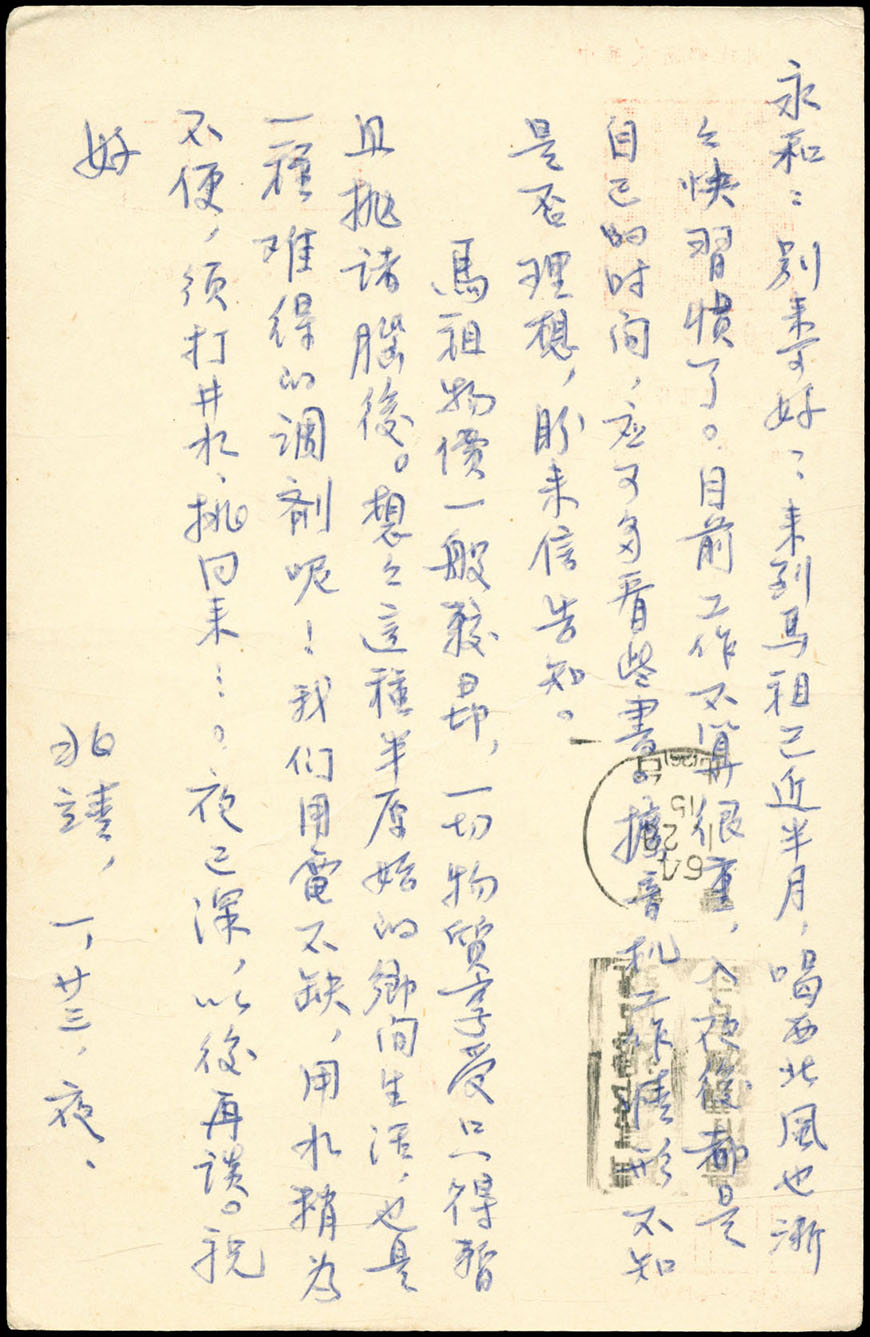 永和：別來可好：來到馬祖已近半月，喝西北風也漸
々快習慣了。目前工作不算很重，入夜後都是
自己的时间，应可多看些書。擴音机工作情形不知
是否理想，盼来信告知。
馬祖物價一般較昂，一切物質享受只得暫
且拋諸腦後。想々這種半原始的鄉间生活，也是
一種难得的調劑呢！我们用電不缺，用水稍為
不便，须打井水、挑回来…。夜已深，以後再談。祝
好
一，廿三，夜、
61